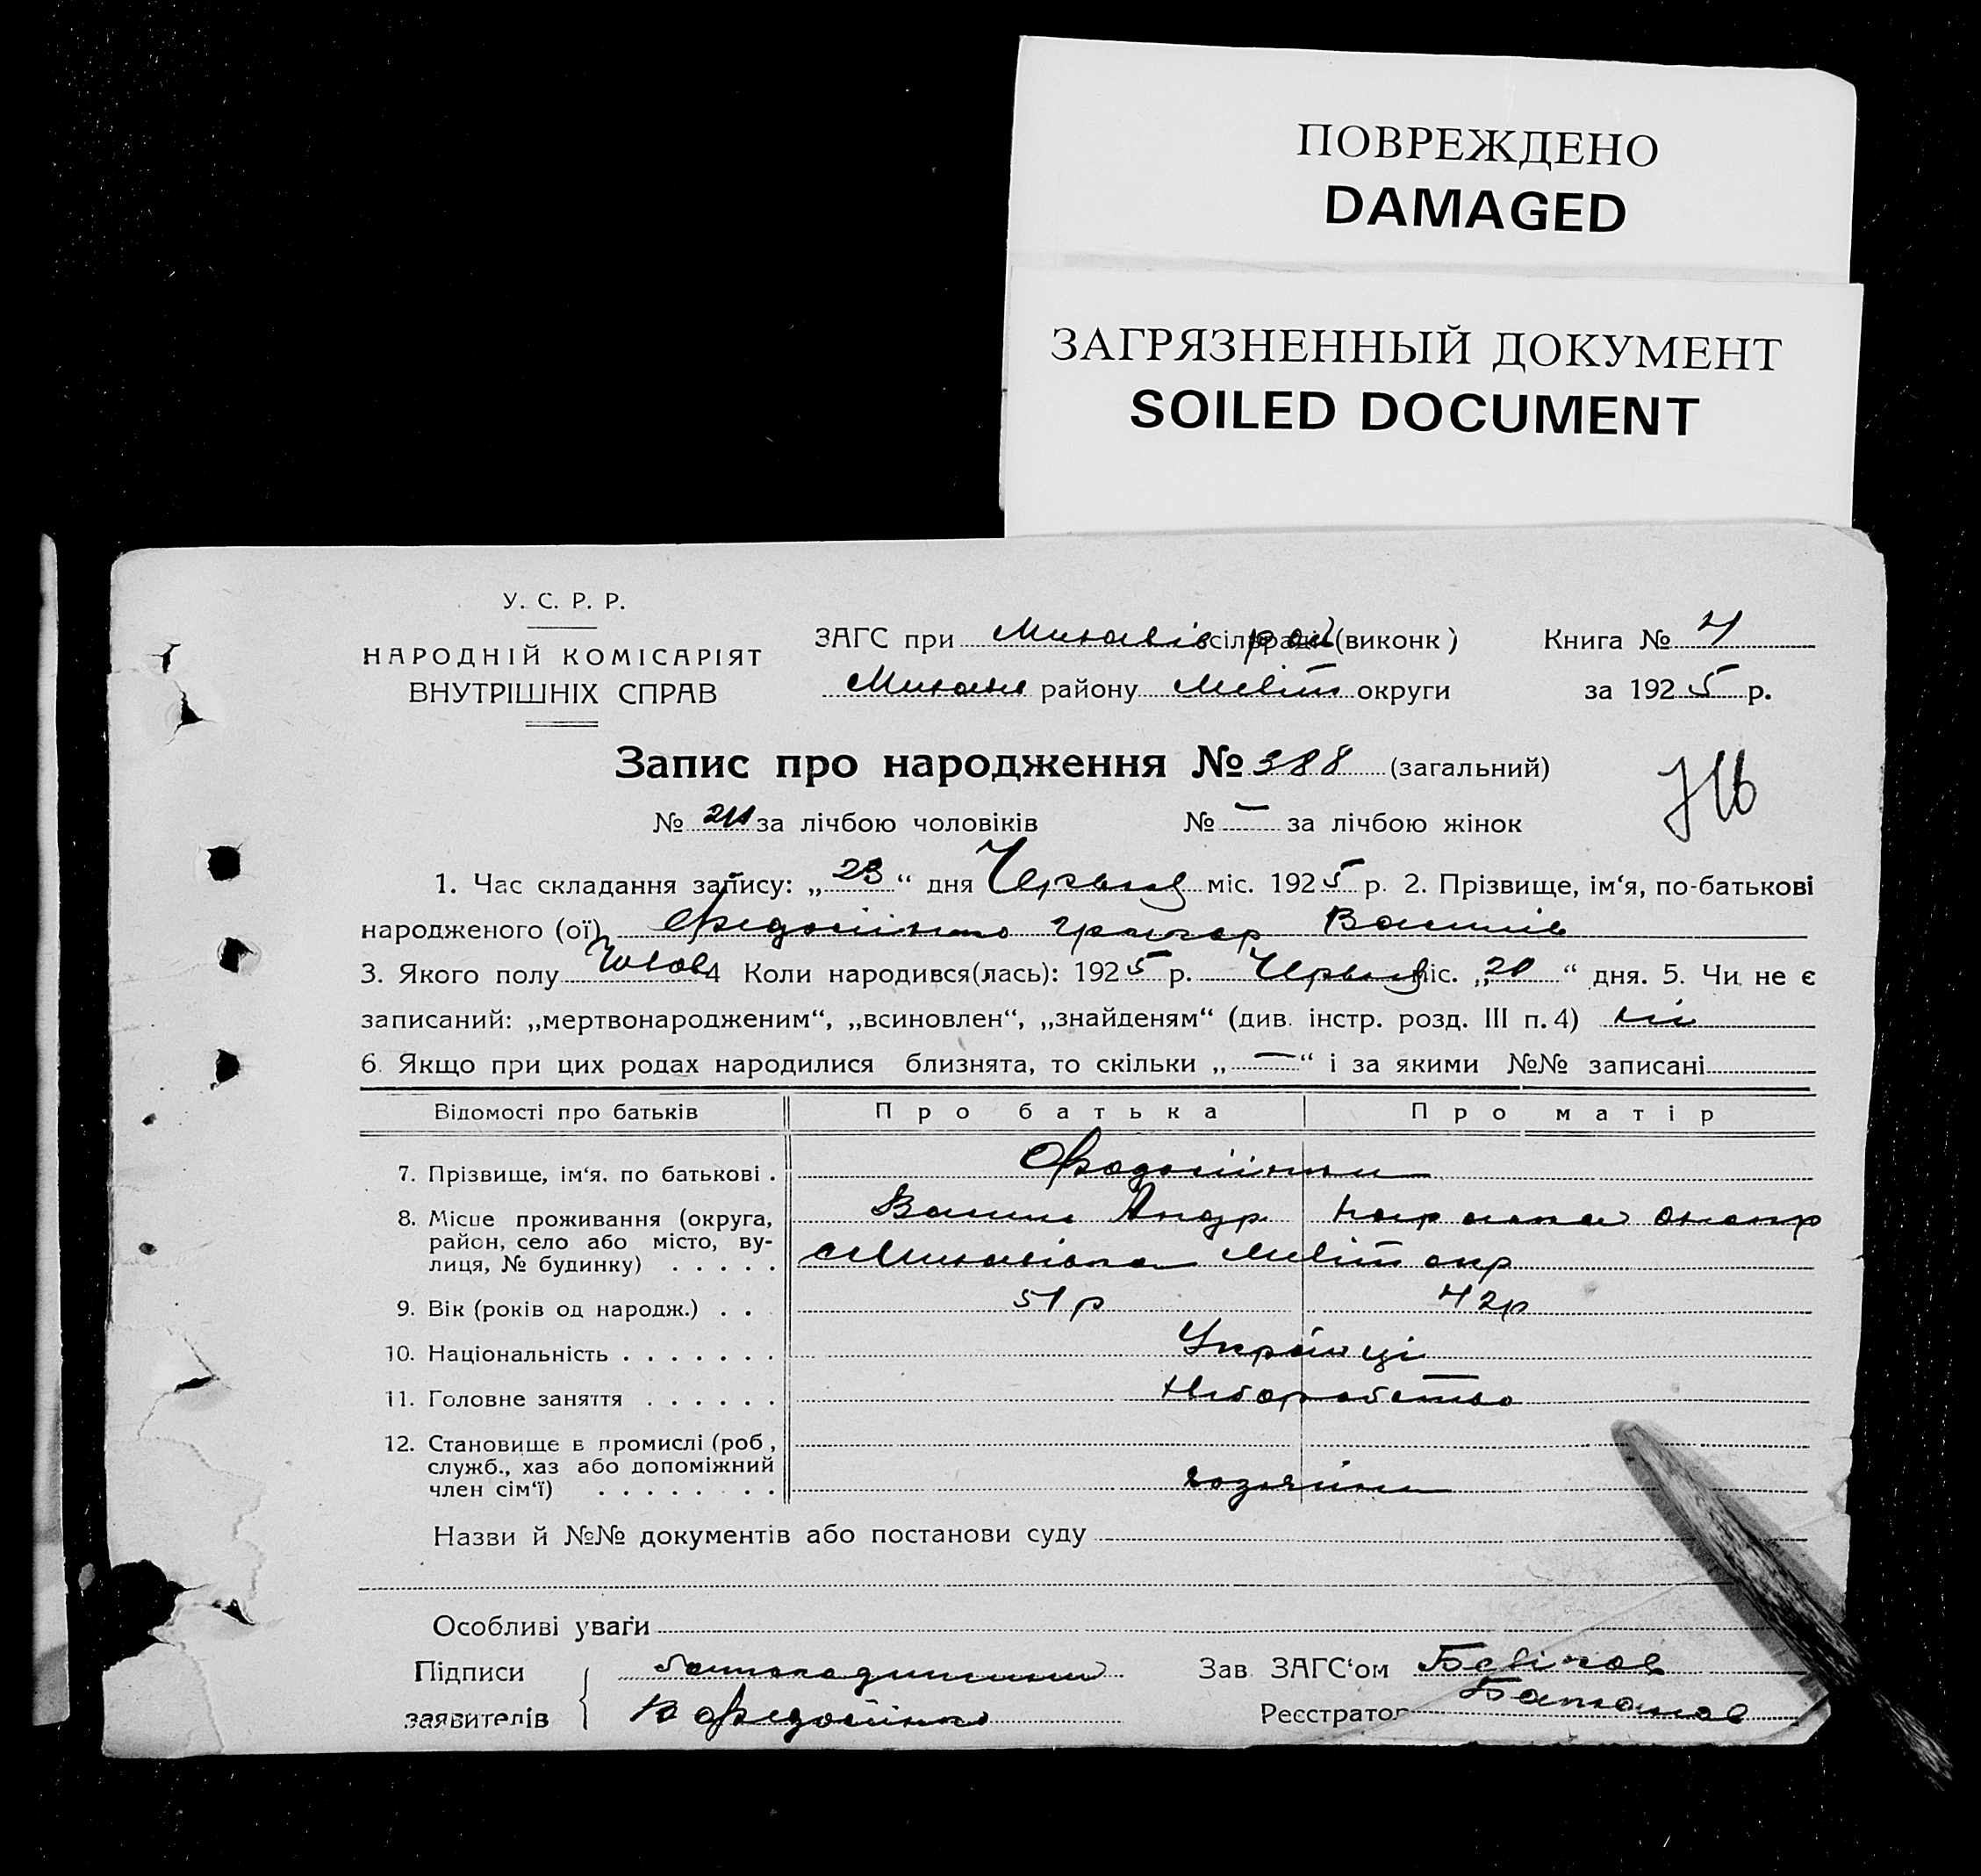 ПОВРЕЖДЕНО
DAMAGED
ЗАГРЯЗНЕННЫЙ ДОКУМЕНТ
SOILED DOCUMENT
У. С. Р. Р.
НАРОДНІЙ КОМІСАРІЯТ
ВНУТРІШНІХ СПРАВ
ЗАГС при сільраді (виконк) Книга № 4
району Меліт округи за 1925 р.
Запис про народження № 388 (загальний)
№ за лічбою чоловіків № — за лічбою жінок
1. Час складання запису: „23“ дня Червня міс. 1925 р. 2. Прізвище, ім‘я, по-батькові
народженого (ої) Федосіїнко Григор Василів
3. Якого полу Чолов 4 Коли народився(лась): 1925 р. Червня міс. „20“ дня. 5. Чи не є
записаний: „мертвонародженим“, „всиновлен“, „знайденям“ (див. інстр. розд. III п. 4) ні
6. Якщо при цих родах народилися близнята, то скільки „—“ і за якими №№ записані
Відомості про батьків Про батька Про матір
7. Прізвище, ім‘я, по батькові .
8. Місце проживання (округа, Васил Андр
район, село або місто, ву- Меліт окр
лиця, № будинку) . . . . .
9. Вік (років од народж.) . . 51 р 42 р
10. Національність . . . . . . . Українці
11. Головне заняття . . . . . . Хліборобство
12. Становище в промислі (роб.,
служб., хаз або допоміжний
член сім‘ї) . . . . . . . . хозяїни
Назви й №№ документів або постанови суду
Особливі уваги
Підписи Зав ЗАГС‘ом
заявителів Реєстратор